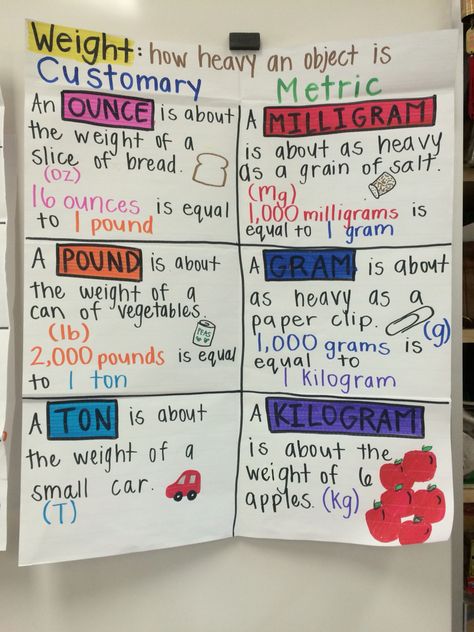 Weight: how heavy an object is
Customary
Metric
An OUNCE is about
the weight of a
slice of bread.
(oz)
16 ounces is equal
to 1 pound
A MILLIGRAM
is about as heavy
as a grain of salt.
(Mg)
1,000 milligrams is
equal to 1 gram
A POUND is about
the weight of a
can of vegetables.
(lb)
PEAS
2,000 pounds is equal
to 1 ton
A GRAM is about
as heavy as a
paper clip.
(g)
1,000 grams is
equal to
1 kilogram
A TON is about
the weight of a
small car.
(T)
A KILOGRAM
is about the
weight of 6
apples. (Kg)